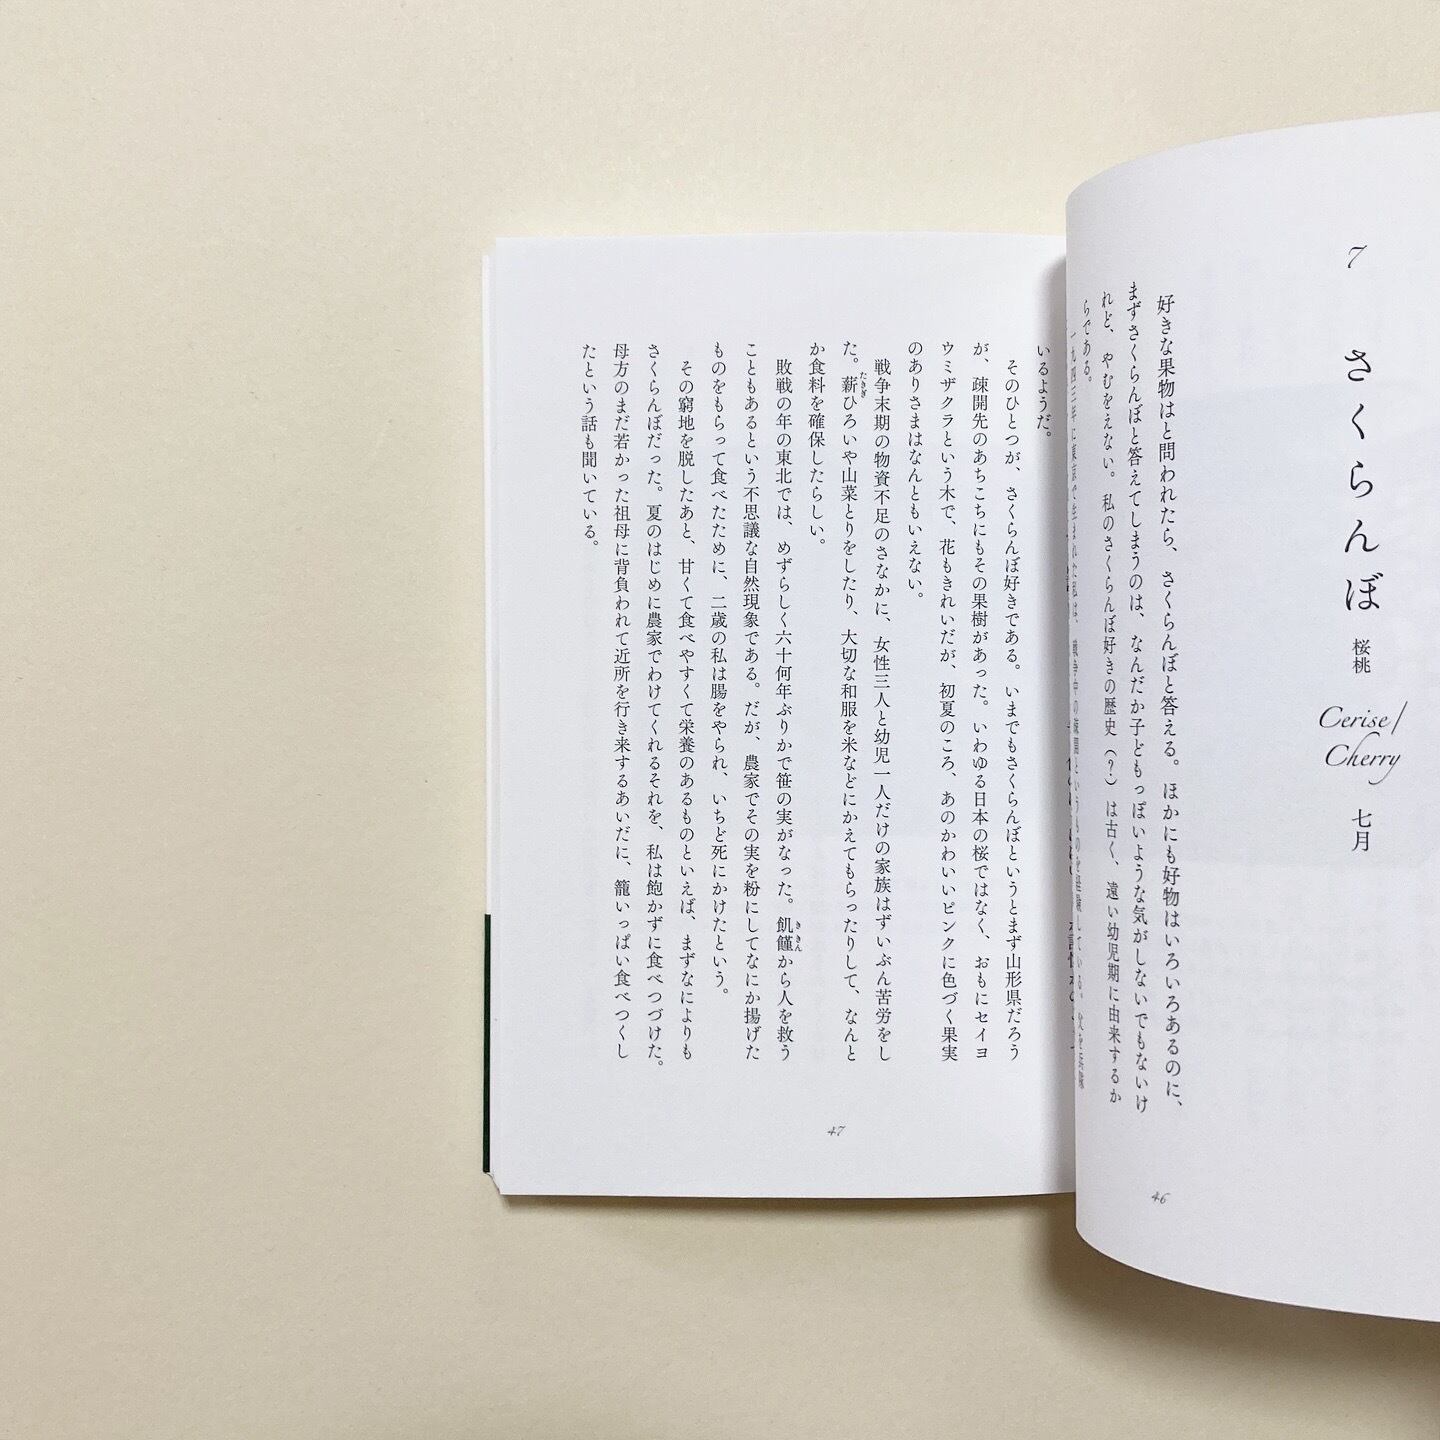 7
さくらんぼ
桜桃
Cerise/
Cherry
七月
好きな果物はと問われたら、さくらんぼと答える。ほかにも好物はいろいろあるのに、
まずさくらんぼと答えてしまうのは、なんだか子どもっぽいような気がしないでもないけ
れど、やむをえない。私のさくらんぼ好きの歴史(?)は古く、遠い幼児期に由来するか
らである。
一九四三年に東京で生まれた私は、戦争中の疎開というものを経験している。父を兵隊
46
いるようだ。
そのひとつが、さくらんぼ好きである。いまでもさくらんぼというとまず山形県だろう
が、疎開先のあちこちにもその果樹があった。いわゆる日本の桜ではなく、おもにセイヨ
ウミザクラという木で、花もきれいだが、初夏のころ、あのかわいいピンクに色づく果実
のありさまはなんともいえない。
戦争末期の物資不足のさなかに、女性三人と幼児一人だけの家族はずいぶん苦労をし
た。薪たきぎひろいや山菜とりをしたり、大切な和服を米などにかえてもらったりして、なんと
か食料を確保したらしい。
敗戦の年の東北では、めずらしく六十何年ぶりかで笹の実がなった。飢饉ききんから人を救う
こともあるという不思議な自然現象である。だが、農家でその実を粉にしてなにか揚げた
ものをもらって食べたために、二歳の私は腸をやられ、いちど死にかけたという。
その窮地を脱したあと、甘くて食べやすくて栄養のあるものといえば、まずなによりも
さくらんぼだった。夏のはじめに農家でわけてくれるそれを、私は飽かずに食べつづけた。
母方のまだ若かった祖母に背負われて近所を行き来するあいだに、籠いっぱい食べつくし
たという話も聞いている。
47